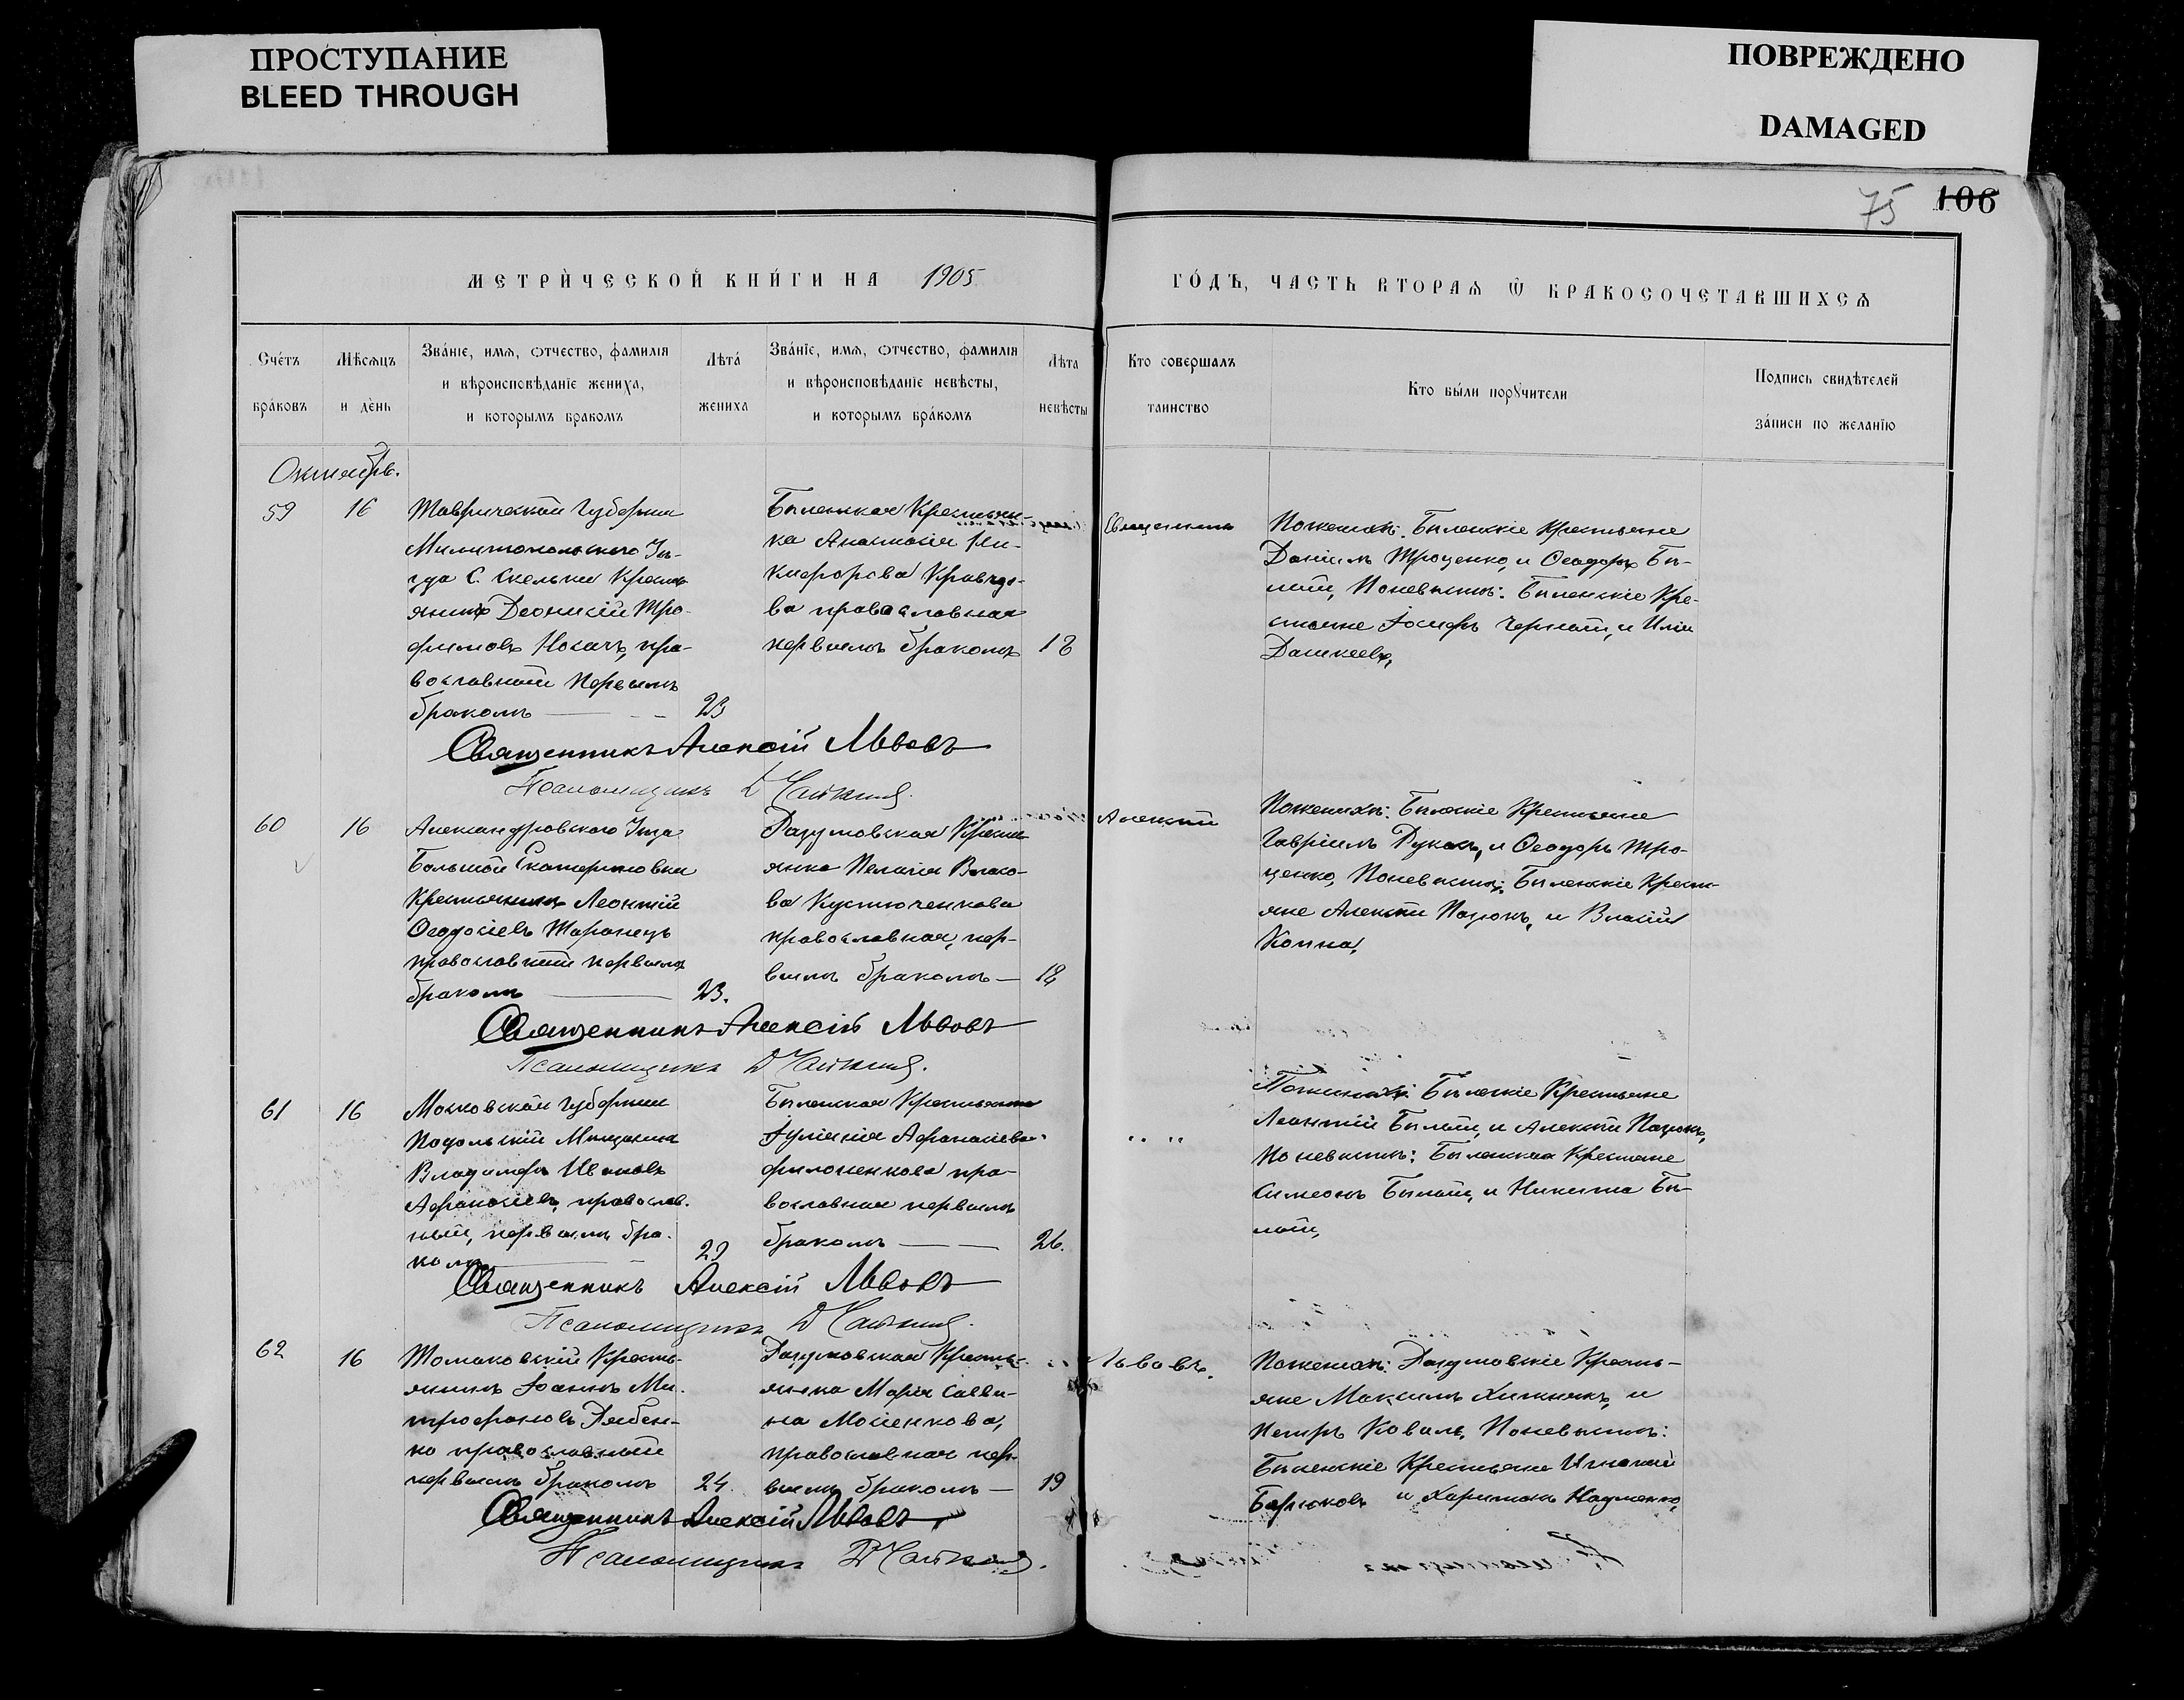 ПРОСТУПАНИЕ
BLEED THROUGH
ПОВРЕЖДЕНО
DAMAGED
75 106
МЕТРИ́ЧЕСКОЙ КНИ́ГИ НА 1905
ГО́ДЪ, ЧАСТЬ ВТОРАѦ Ѿ БРАКОСОЧЕТАВШИХСѦ
Счётъ
бра́ковъ
Мѣсѧцъ
и де́нь
Зва́нїе, имѧ, ѻтчество, фамилїя
и вѣроисповѣданїе жениха,
и которымъ бракомъ
Лѣта́
жениха
Зва́нїе, имѧ, ѻтчество, фамилїя
и вѣроисповѣданїе невѣсты,
и которымъ бра́комъ
Лѣта
невѣсты
Кто совершалъ
таинство
Кто бы́ли порꙋчители
Подпись свидѣтелей
за́писи по желанїю
Октябрь.
59
16
Таврической Губернии
Милитопольскаго Уѣ-
зда С. Скельки Кресть-
янинъ Леонтій Тро-
фимовъ Носачъ, пра-
вославный первымъ
бракомъ
23
Бѣленькая Крестьян-
ка Анастасія Ни-
кифорова Кравцо-
ва православная
первымъ бракомъ
18
Священникъ
Поженихѣ: Бѣленскіе Крестьяне
Даніилъ Троценко, и Ѳеодоръ Бѣ-
лый, Поневѣстѣ: Бѣленскіе Кре-
стьяне Іосифъ Черный, и Илія
Дашкеевъ,
Священникъ Алексій Львовъ
Псаломщикъ
60
16
Александровскаго Уѣзда
Большой Екатериновки
Крестьянинъ Леонтій
Ѳеодосіевъ Таранецъ
православный первымъ
бракомъ
23.
Разумовская Кресть-
янка Пелагія Власо-
ва Кустюченкова
православная, пер-
вымъ бракомъ
18
Алексій
Поженихѣ: Бѣленскіе Крестьяне
Гавріилъ Рукасъ, и Ѳеодоръ Тро-
ценко, Поневѣстѣ: Бѣленскіе Кресть-
яне Алексій Пацюкъ, и Власій
Копка,
Священникъ Алексій Львовъ
Псаломщикъ
61
16
Московской Губернии
Подольскій Мѣщанинъ
Владимиръ Ивановъ
Афанасіевъ, православ-
ный, первымъ бра-
комъ
29
Бѣленская Крестьянка
Іуліанія Афанасіева
Филоненкова пра-
вославная первымъ
бракомъ
26.
Поженихѣ: Бѣленскіе Крестьяне
Леонтій Бѣлый, и Алексій Пацюкъ,
Поневѣстѣ: Бѣленскіе Крестьяне
Симеонъ Бѣлый, и Никита Бѣ-
лый,
Священникъ Алексій Львовъ
Псаломщикъ
62
16
Томаковскій Кресть-
янинъ Іоаннъ Ми-
трофановъ
православный
первымъ бракомъ
24.
Разумовская Кресть-
янка Марія Савви-
на Мосенкова,
православная пер-
вымъ бракомъ
19
Львовъ.
Поженихѣ: Разумовскіе Кресть-
яне Максимъ Хижнякъ, и
Петръ Коваль, Поневѣстѣ:
Бѣленскіе Крестьяне Игнатій
Бирюковъ и Харитонъ Науменко,
Священникъ Алексій Львовъ
Псаломщикъ